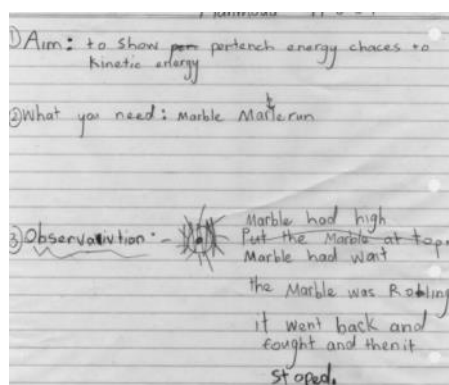 ① Aim: to show pertench energy chaces to
kinetic energy
② What you need: Marble Marlerun
③ Observaivtion -
Marble had high
Put the Marble at top
Marble had wait
the Marble was Robling
it went back and
fought and then it
stoped.